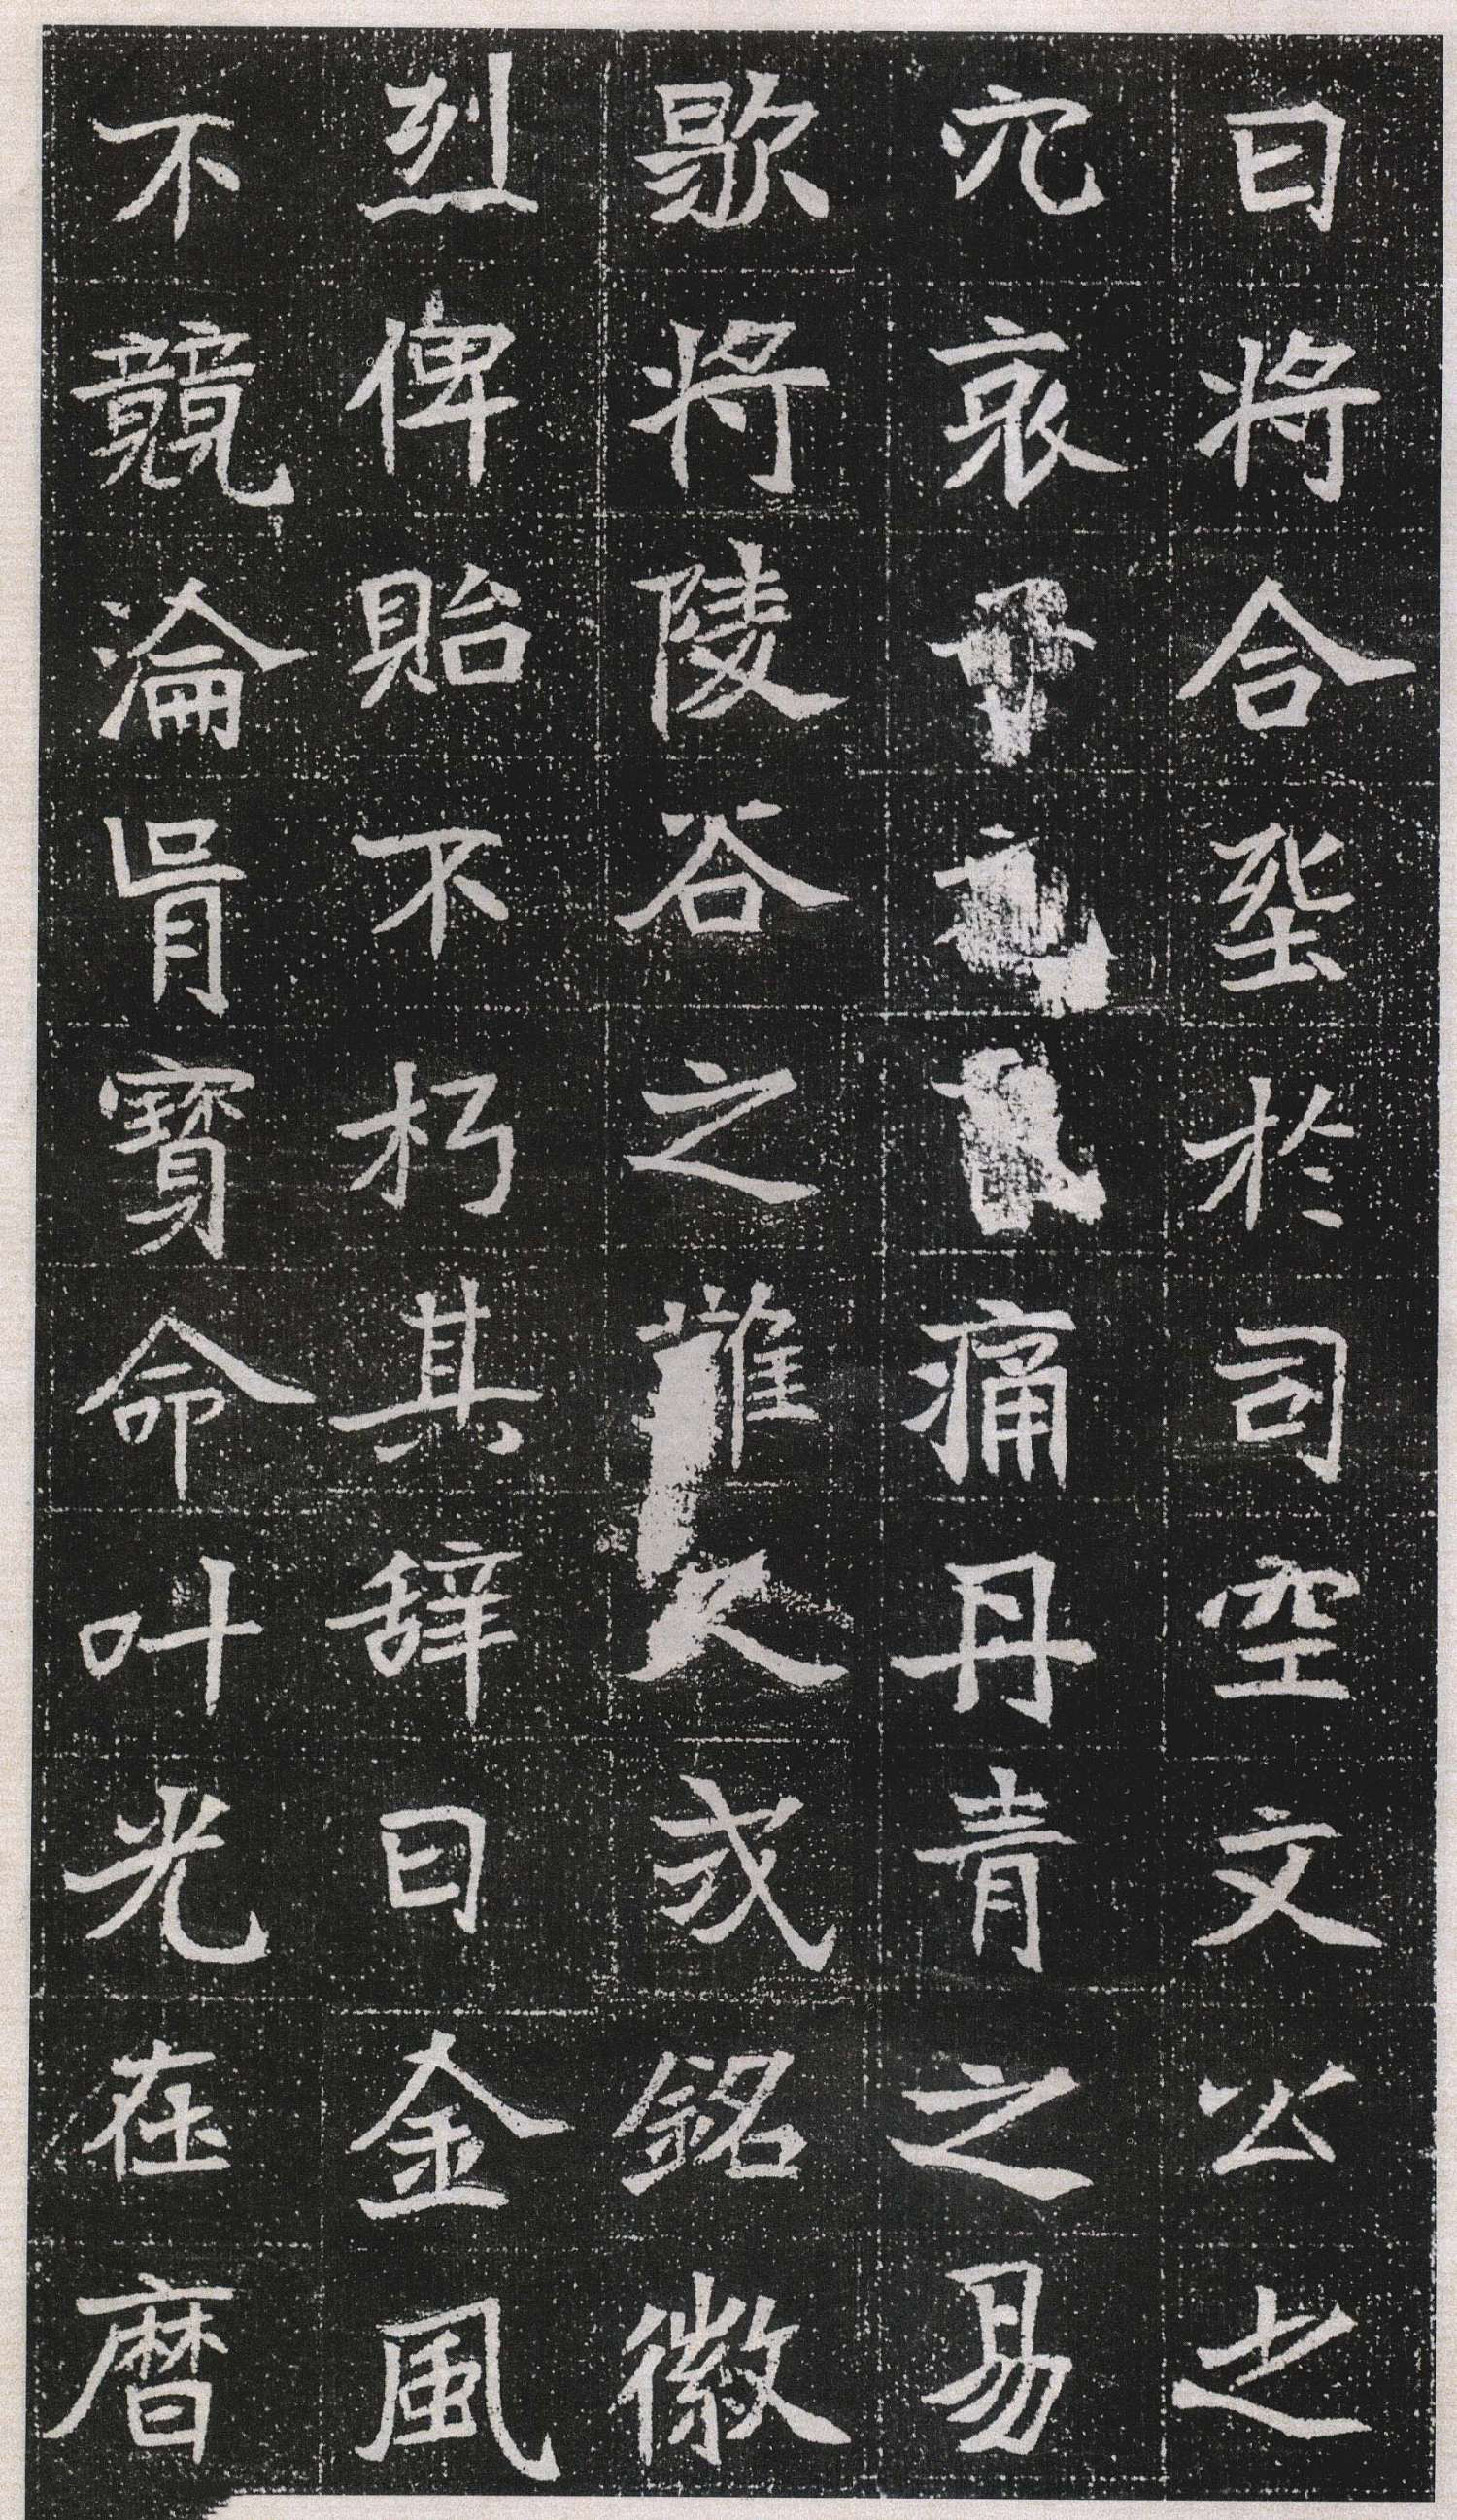 日将合塋於司空文公之
穴哀痛丹青之易
歇将陵谷之難久或銘徽
烈俾貽不朽其辞曰金風
不競淪胥寶命叶光在曆